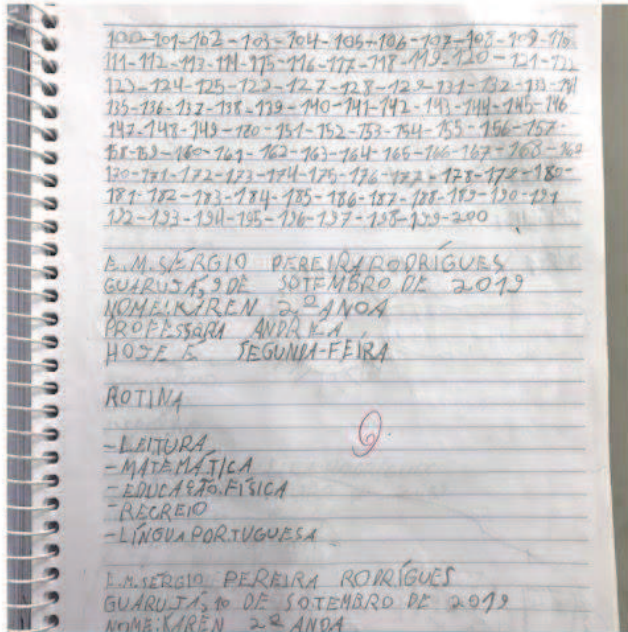 100-101-102-103-104-105-106-107-108-109-110
111-112-113-114-115-116-117-118-119-120-121-122
123-124-125-122-127-128-129-131-132-133-134
135-136-137-138-139-140-141-142-143-144-145-146
147-148-149-180-151-152-153-154-155-156-157-
158-159-160-161-162-163-164-165-166-167-168-169
170-171-172-173-174-175-176-177-178-179-180-
181-182-183-184-185-186-187-188-189-190-191
192-193-194-195-196-197-198-199-200
E.M.SÉRGIO PEREIRA RODRÍGUES
GUARUJÁ, 9 DE SOTEMBRO DE 2019
NOME:KAREN 2º ANOA
PROFESSORA
HOJE É SEGUNDA-FEIRA
ROTINA
-LEITURA
-MATEMÁTICA
-EDUCAÇÃO.FÍSICA
-RECREIO
-LÍNGUA PORTUGUESA
E.M.SERGIO PEREIRA RODRÍGUES
GUARUJÁ, 10 DE SOTEMBRO DE 2019
NOME:KAREN 2º ANOA